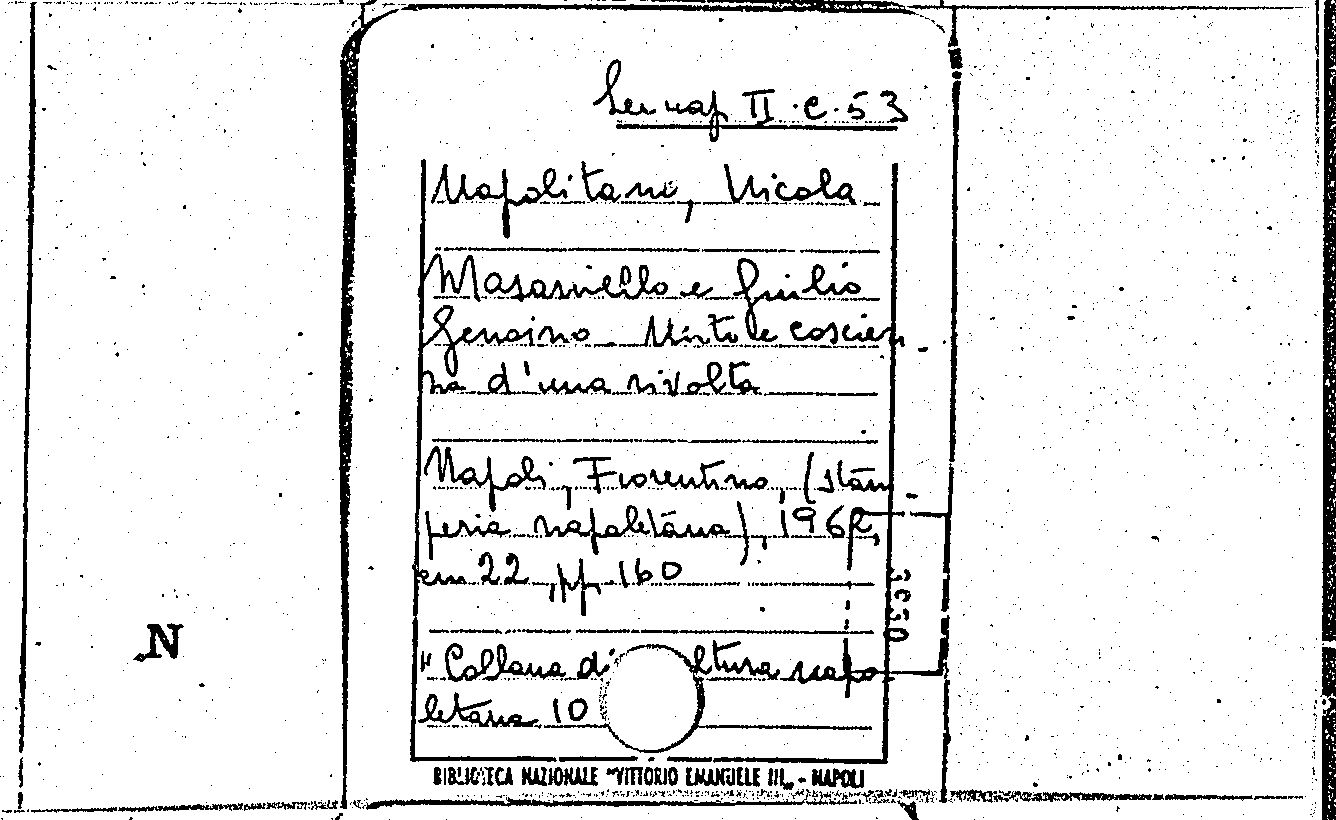 Sez nap II. C. 53
Napolitano, Nicola
Masaniello e Giulio
Genoino. Mito e coscien-
za d'una rivolta
Napoli, Fiorentino, (stam-
peria napoletana), 1962,
cm 22, pp. 160
3650
N
"Collana di ltura napo-
letana 10
BIBLIOTECA NAZIONALE "VITTORIO EMANUELE III„ - NAPOLI